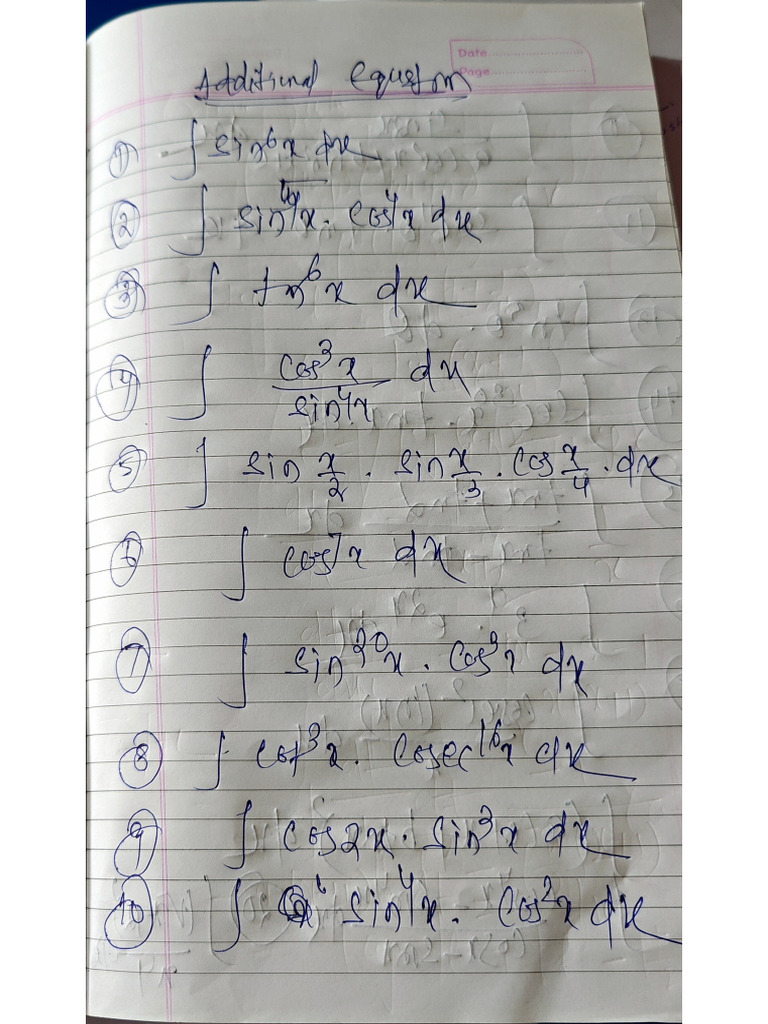 Date
Page
Additional Equation
① ∫ sin⁶x dx
② ∫ sin⁴x . cos⁴x dx
③ ∫ tan⁶x dx
④ ∫ cos³x / sin⁴x dx
⑤ ∫ sin x/2 . sin x/3 . cos x/4 . dx
⑥ ∫ cos⁷x dx
⑦ ∫ sin²⁰x . cos⁹x dx
⑧ ∫ cot³x . cosec¹⁶x dx
⑨ ∫ cos2x . sin³x dx
⑩ ∫ sin⁴x . cos²x dx